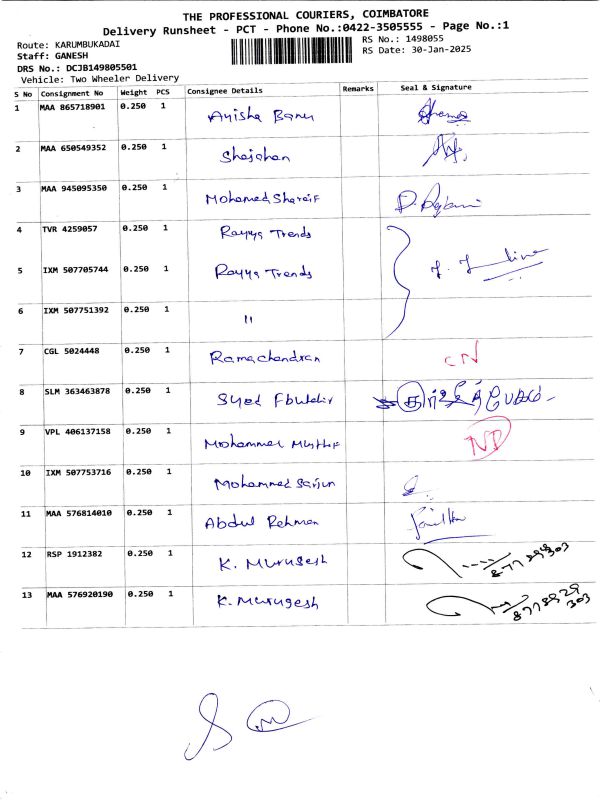 THE PROFESSIONAL COURIERS, COIMBATORE
Delivery Runsheet - PCT - Phone No.:0422-3505555 - Page No.:1
Route: KARUMBUKADAI RS No.: 1498055
Staff: GANESH RS Date: 30-Jan-2025
DRS No.: DCJB149805501
Vehicle: Two Wheeler Delivery
S No Consignment No Weight PCS Consignee Details Remarks Seal & Signature
1 MAA 865718901 0.250 1 Ayisha Banu
2 MAA 650549352 0.250 1 Shajahan
3 MAA 945095350 0.250 1 Mohamed Shareif
4 TVR 4259057 0.250 1 Rayya Trends
5 IXM 507705744 0.250 1 Rayya Trends
6 IXM 507751392 0.250 1 "
7 CGL 5024448 0.250 1 Ramachandran CN
8 SLM 363463878 0.250 1 Syed
9 VPL 406137158 0.250 1 Mohammed ND
10 IXM 507753716 0.250 1 Mohammed Sarjun
11 MAA 576814010 0.250 1 Abdul Rehman
12 RSP 1912382 0.250 1 K. Murugesh
13 MAA 576920190 0.250 1 K. Murugesh 8778929303